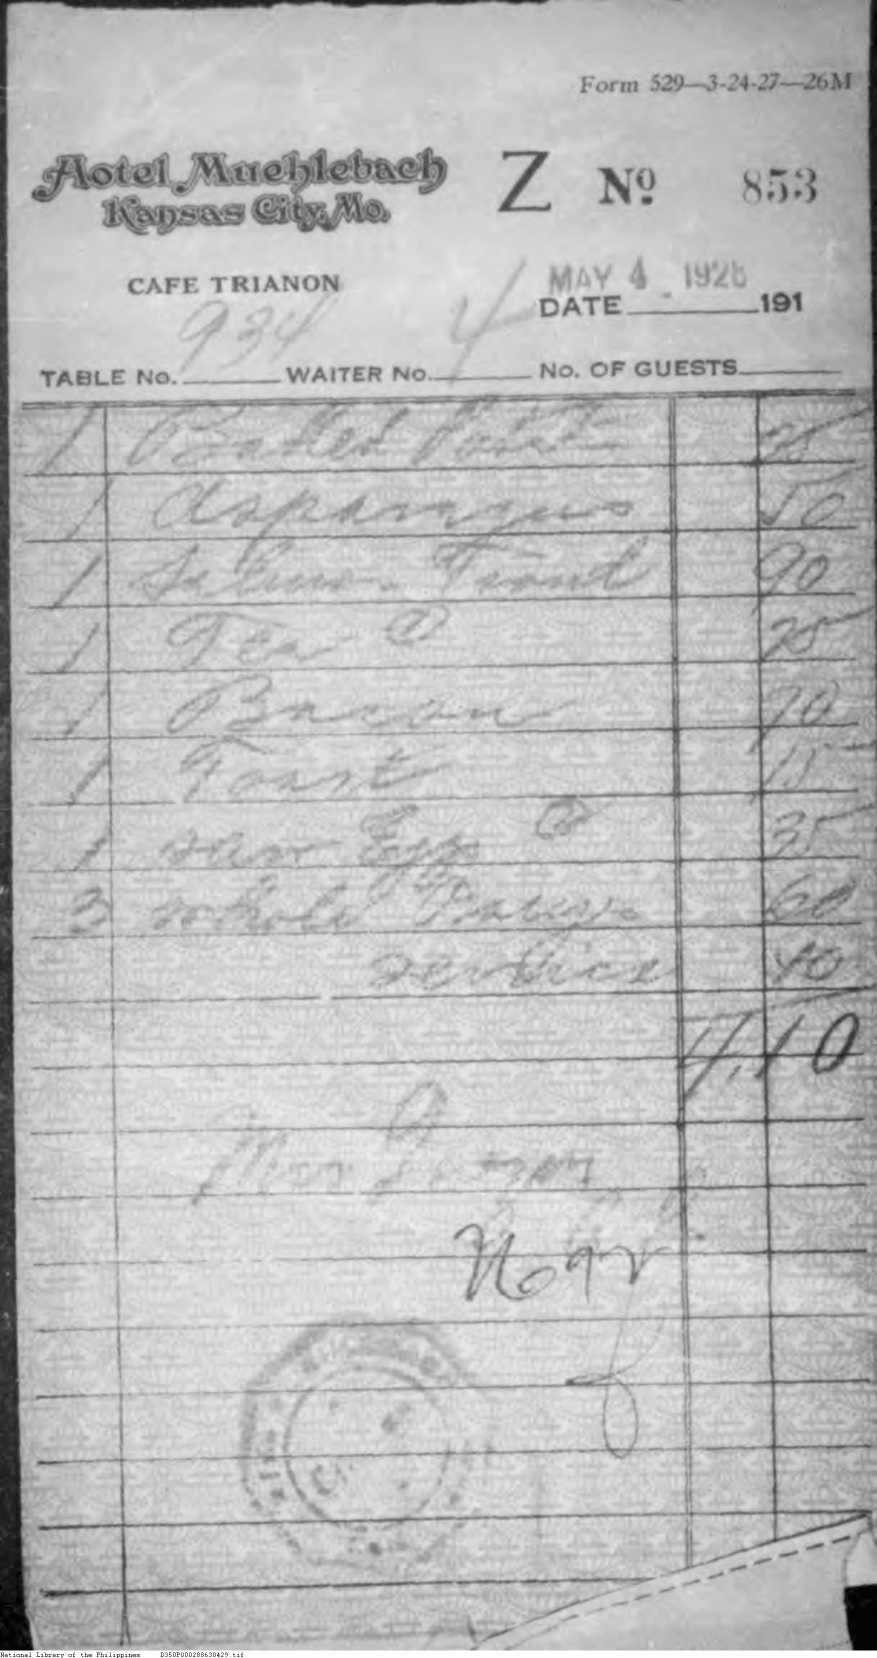 Form 529—3-24-27—26M
Hotel Muehlebach
Kansas City, Mo.
Z No 853
CAFE TRIANON
MAY 4 1928
DATE 191
934 4
TABLE No. WAITER No. No. OF GUESTS
1 Baked Potato
1 Asparagus 50
1 Trout 90
1 Tea 25
1 Bacon 70
1 Toast 15
1 Eggs 35
3 whole 60
service 40
4.10
National Library of the Philippines D350P000288630429.tif